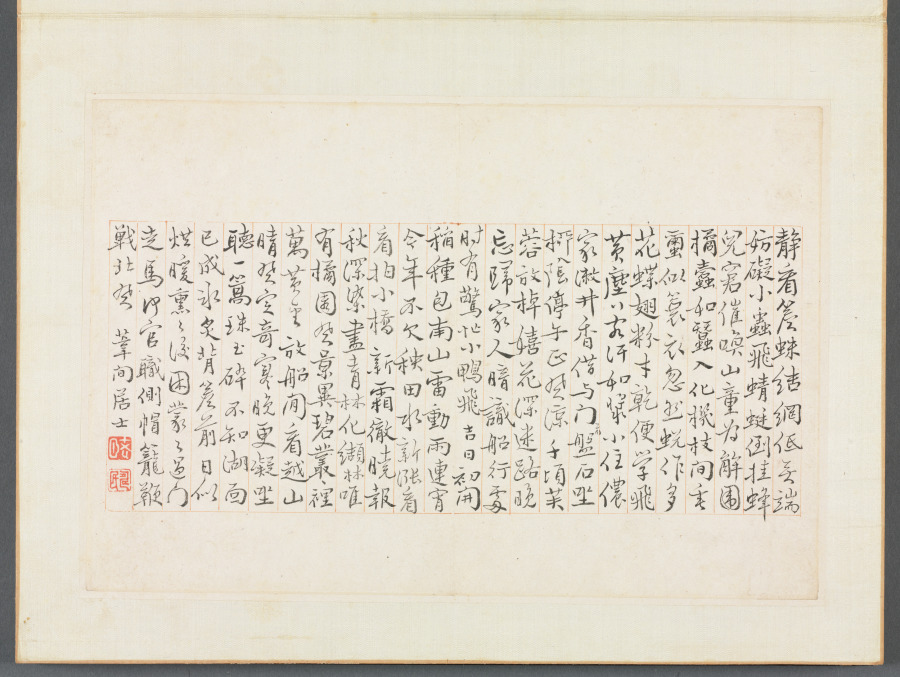 静看簷蛛結網低無端
妨礙小蟲飛蜻蜓倒挂蜂
兒窘催喚山童為解圍
橘蠹和蠶入化機枝間垂
繭似蓑衣忽然蛻作多
花蝶翅粉才乾便学飛
黄塵行客汗和漿小住儂
家漱井香借与门前盤石坐
柳陰停午正風涼千頃芙
蓉放棹嬉花深迷路晚
忘歸家人暗識船行處
时有驚忙小鴨飛吉日初開
稲種包南山雷動雨連宵
今年不欠秧田水新漲看
看拍小橋新霜徹曉報
秋深染盡青林化纈林唯
有橘園風景異碧叢裡
萬黄金放船閒看越山
晴風定奇寒晚更凝坐
聽一篙珠玉碎不知湖面
已成冰炙背簷前日似
烘暖熏〻後困蒙〻過门
走馬何官職側帽籠鞭
戰北風 葦间居士